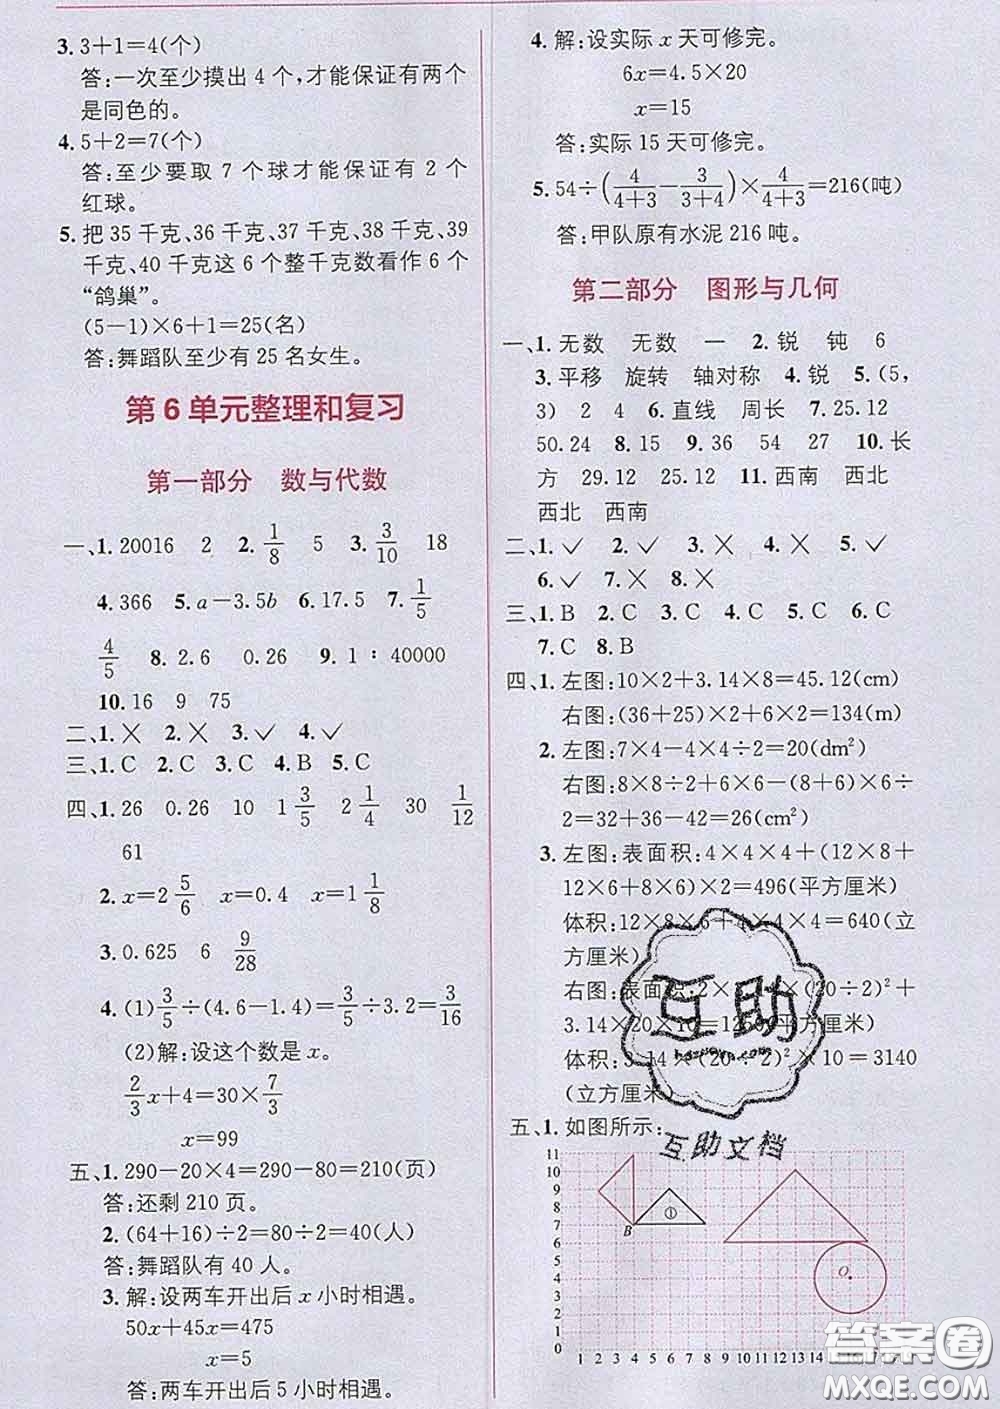 3. 3+1=4(个)
答:一次至少摸出 4 个,才能保证有两个
是同色的。
4. 5+2=7(个)
答:至少要取 7 个球才能保证有 2 个
红球。
5. 把 35 千克、36 千克、37 千克、38 千克、39
千克、40 千克这 6 个整千克数看作 6 个
“鸽巢”。
(5-1)×6+1=25(名)
答:舞蹈队至少有 25 名女生。
第 6 单元整理和复习
第一部分 数与代数
一、1. 20016 2 2. 1/8 5 3. 3/10 18
4. 366 5. a-3.5b 6. 17.5 7. 1/5
4/5 8. 2.6 0.26 9. 1∶40000
10. 16 9 75
二、1. × 2. × 3. ✓ 4. ✓
三、1. C 2. C 3. C 4. B 5. C
四、1. 26 0.26 10 1 3/5 2 1/4 30 1/12
61
2. x=2 5/6 x=0.4 x=1 1/8
3. 0.625 6 9/28
4. (1) 3/5÷(4.6-1.4)=3/5÷3.2=3/16
(2)解:设这个数是 x。
2/3x+4=30×7/3
x=99
五、1. 290-20×4=290-80=210(页)
答:还剩 210 页。
2. (64+16)÷2=80÷2=40(人)
答:舞蹈队有 40 人。
3. 解:设两车开出后 x 小时相遇。
50x+45x=475
x=5
答:两车开出后 5 小时相遇。
4. 解:设实际 x 天可修完。
6x=4.5×20
x=15
答:实际 15 天可修完。
5. 54÷(4/(4+3)-3/(3+4))×4/(4+3)=216(吨)
答:甲队原有水泥 216 吨。
第二部分 图形与几何
一、1. 无数 无数 一 2. 锐 钝 6
3. 平移 旋转 轴对称 4. 锐 5. (5,
3) 2 4 6. 直线 周长 7. 25.12
50.24 8. 15 9. 36 54 27 10. 长
方 29.12 25.12 11. 西南 西北
西北 西南
二、1. ✓ 2. ✓ 3. × 4. × 5. ✓
6. ✓ 7. × 8. ×
三、1. B 2. C 3. C 4. C 5. C 6. C
7. C 8. B
四、1. 左图:10×2+3.14×8=45.12(cm)
右图:(36+25)×2+6×2=134(m)
2. 左图:7×4-4×4÷2=20(dm²)
右图:8×8÷2+6×6-(8+6)×6÷
2=32+36-42=26(cm²)
3. 左图:表面积:4×4×4+(12×8+
12×6+8×6)×2=496(平方厘米)
体积:12×8×6+4×4×4=640(立
方厘米)
右图:表面积:2××(20÷2)²+
3.14×20×10=125(平方厘米)
体积:3.14×(20÷2)²×10=3140
(立方厘米)
五、1. 如图所示:
11
10
9
8
7
6
5
4
3
2
1
0
B
①
O
1 2 3 4 5 6 7 8 9 10 11 12 13 14 15 16 17 18
互助
互助文档
答案圈
MXQE.COM